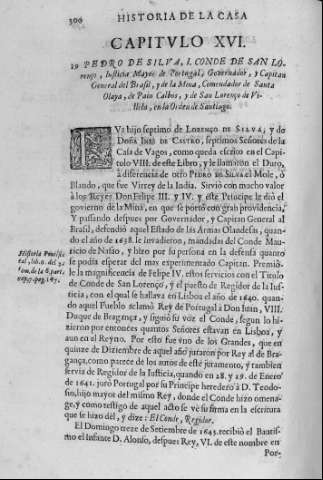 300
HISTORIA DE LA CASA
CAPITVLO XVI.
19 PEDRO DE SILVA, I. CONDE DE SAN LO-
renço, Iusticia Mayor de Portugal, Governador, y Capitan
General del Brasil, y de la Mina, Comendador de Santa
Olaya, de Paio Calbos, y de San Lorenço de
en la Orden de Santiago.
Va hijo septimo de LORENÇO DE SILVA, y de
DOÑA INES DE CASTRO, septimos Señores de la
Casa de Vagos, como queda escrito en el Capi-
tulo VIII. de este Libro, y le llamaron el Duro,
à diferencia de otro PEDRO DE SILVA el Mole, ò
Blando, que fue Virrey de la India. Sirviò con mucho valor
à los Reyes Don Felipe III. y IV. y este Principe le diò el
govierno de la Mina, en que se portò con gran providencia,
Y passando despues por Governador, y Capitan General al
Brasil, defendiò aquel Estado de las Armas Olandesas, quan-
do el año de 1638. le invadieron, mandadas del Conde Mau-
ricio de Nasão, y hizo por su persona en la defensa quanto
se podia esperar del mas experimentado Capitan. Premiò-
le la magnificencia de Felipe IV. estos servicios con el Titulo
de Conde de San Lorenço, y el puesto de Regidor de la Ius-
ticia, con el qual se hallava en Lisboa el año de 1640. quan-
do aquel Pueblo aclamò Rey de Portugal à Don Iuan, VIII.
Duque de Bragança, y siguiò su voz el Conde, segun lo hi-
zieron por entonces quantos Señores estavan en Lisboa, y
aun en el Reyno. Por esto fue vno de los Grandes, que en
quinze de Diziembre de aquel año juraron por Rey al de Bra-
gança, como parece de los autos de este juramento, y tambien
servia de Regidor de la Iusticia, quando en 28. y 29. de Enero
de 1641. jurò Portugal por su Principe heredero à D. Teodo-
sio, hijo mayor del mismo Rey, donde el Conde hizo omena-
ge, y como testigo de aquel acto se vè su firma en la escritura
que se hizo dèl, y dize: El Conde, Regidor.
El Domingo treze de Setiembre de 1643. recibiò el Bautis-
mo el Infante D. Alonso, despues Rey, VI. de este nombre en
Por-
Historia